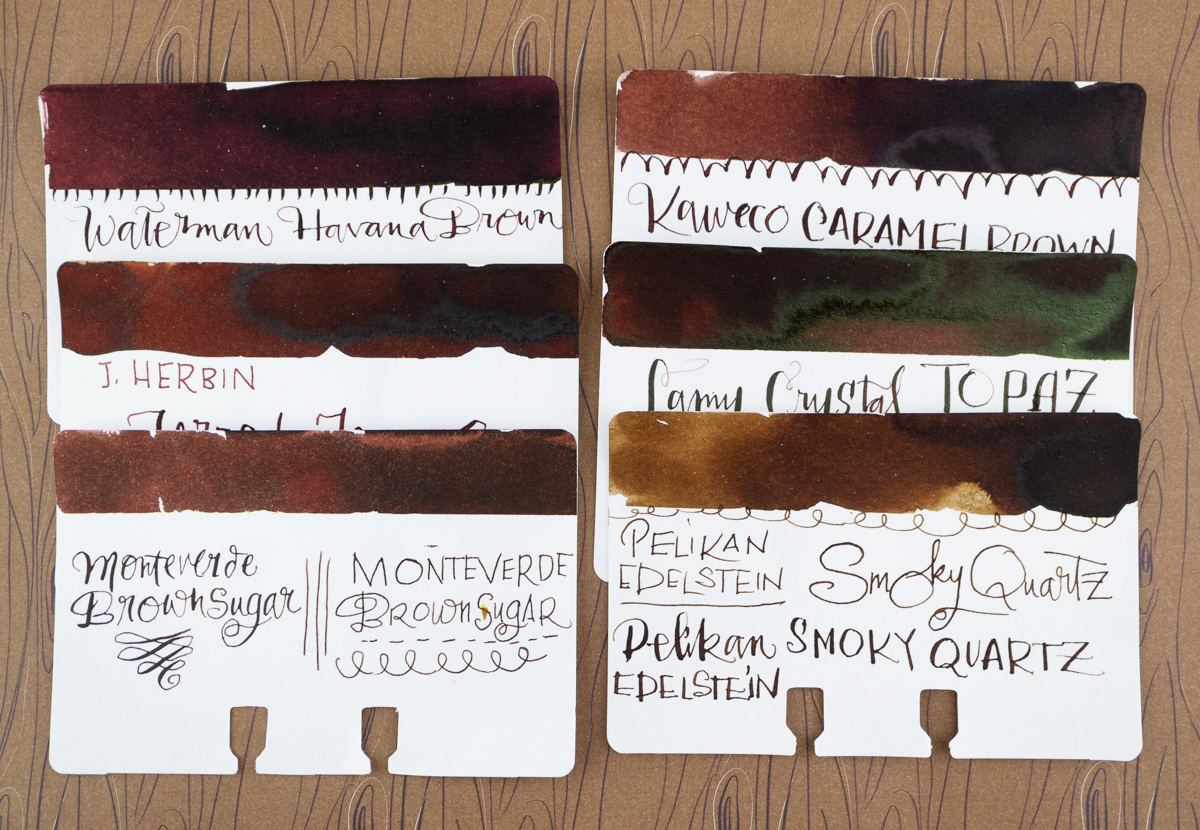 Waterman Havana Brown
J. HERBIN
Monteverde
Brown Sugar
MONTEVERDE
BROWN SUGAR
Kaweco CARAMEL BROWN
Lamy Crystal TOPAZ
PELIKAN
EDELSTEIN
Smoky Quartz
Pelikan
EDELSTEIN
SMOKY QUARTZ